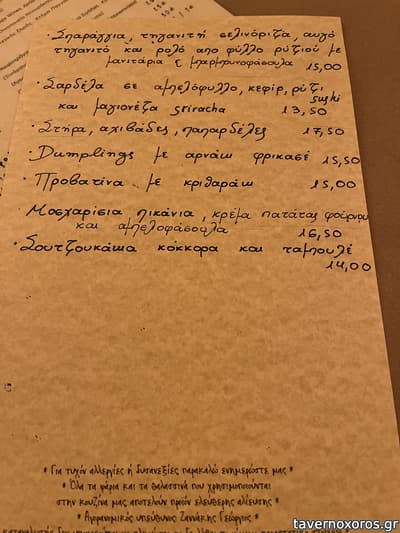 · Σπαράγγια, τηγανιτή σελινόριζα, αυγό
τηγανιτό και ρολό απο φύλλο ρυζιού με
μανιτάρια & μπαρμπουνοφάσουλα 15,00
· Σαρδέλα σε αμπελόφυλλο, κεφίρ, ρύζι
sushi
και μαγιονέζα sriracha 13,50
· Στήρα, αχιβάδες, παπαρδέλες 17,50
· Dumplings με αρνάκι φρικασέ 15,50
· Προβατίνα με κριθαράκι 15,00
· Μοσχαρίσια πικάνια, κρέμα πατάτας φούρνου
και αμπελοφάσουλα 16,50
· Σουτζουκάκια κόκκορα και ταμπουλέ
14,00
* Για τυχόν αλλεργίες ή δυσανεξίες παρακαλώ ενημερώστε μας *
* Όλα τα ψάρια και τα θαλασσινά που χρησιμοποιούνται
στην κουζίνα μας αποτελούν προϊόν ελεύθερης αλίευσης *
* Αγορανομικός υπεύθυνος Ζαννάκης Γεώργιος *
tavernoxoros.gr